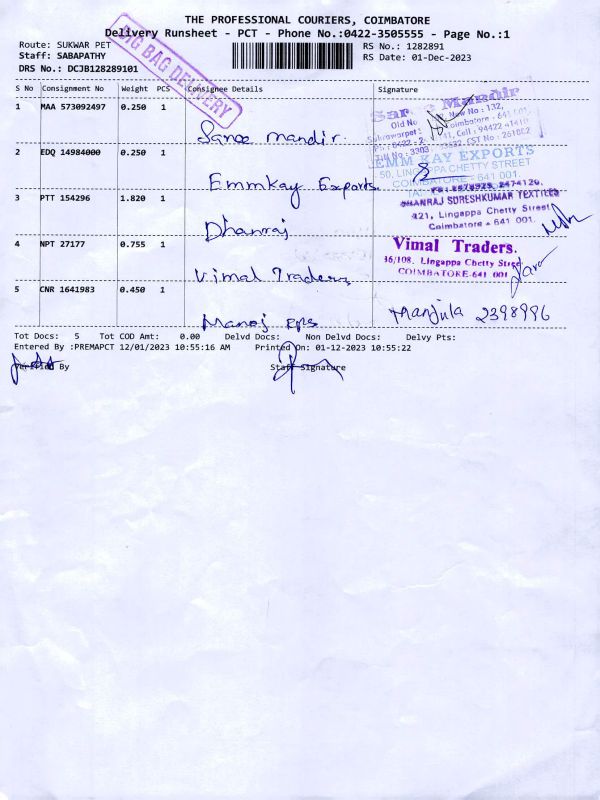 THE PROFESSIONAL COURIERS, COIMBATORE
Delivery Runsheet - PCT - Phone No.:0422-3505555 - Page No.:1
Route: SUKWAR PET
RS No.: 1282891
Staff: SABAPATHY
RS Date: 01-Dec-2023
DRS No.: DCJB128289101
BIG BAG DELIVERY
S No Consignment No Weight PCS Consignee Details Signature
1 MAA 573092497 0.250 1
Saree mandir.
Saree Mandir
New No : 132,
Old No
Coimbatore - 641 001.
Sukrawarpet
Cell : 94422
CST No : 261002
2 EDQ 14984000 0.250 1
Emmkay Exports
EMM KAY EXPORTS
50, LINGAPPA CHETTY STREET
COIMBATORE - 641 001.
3 PTT 154296 1.820 1
Dhanraj
DHANRAJ SURESHKUMAR TEXTILES
421, Lingappa Chetty Street
Coimbatore - 641 001.
4 NPT 27177 0.755 1
Vimal Traders
Vimal Traders.
36/108, Lingappa Chetty Street
COIMBATORE-641 001
5 CNR 1641983 0.450 1
Manoj
Manjula 2398996
Tot Docs: 5 Tot COD Amt: 0.00 Delvd Docs: Non Delvd Docs: Delvy Pts:
Entered By :PREMAPCT 12/01/2023 10:55:16 AM Printed On: 01-12-2023 10:55:22
Verified By
Staff Signature